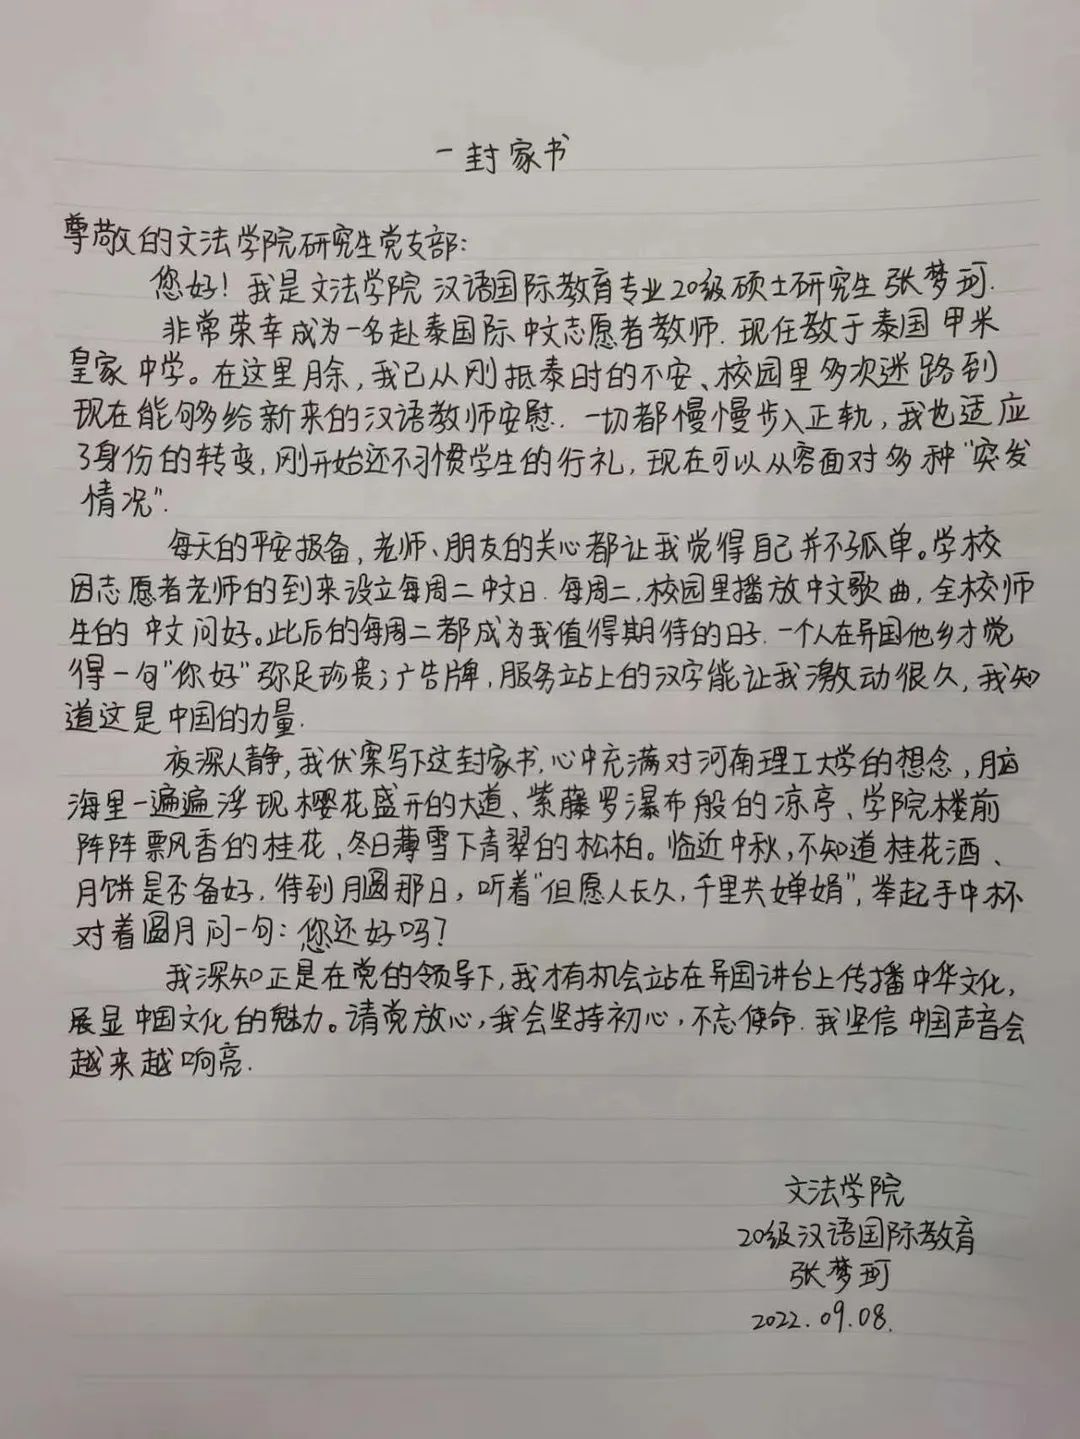 一封家书
尊敬的文法学院研究生党支部:
您好！我是文法学院汉语国际教育专业20级硕士研究生张梦珂.
非常荣幸成为一名赴泰国际中文志愿者教师.现任教于泰国甲米
皇家中学。在这里月余,我已从刚抵泰时的不安、校园里多次迷路到
现在能够给新来的汉语教师安慰.一切都慢慢步入正轨,我也适应
了身份的转变,刚开始还不习惯学生的行礼,现在可以从容面对多种“突发
情况”.
每天的平安报备,老师、朋友的关心都让我觉得自己并不孤单。学校
因志愿者老师的到来设立每周二中文日.每周二,校园里播放中文歌曲,全校师
生的中文问好。此后的每周二都成为我值得期待的日子.一个人在异国他乡才觉
得一句“你好”弥足珍贵;广告牌,服务站上的汉字能让我激动很久,我知
道这是中国的力量.
夜深人静,我伏案写下这封家书.心中充满对河南理工大学的想念,脑
海里一遍遍浮现樱花盛开的大道、紫藤罗瀑布般的凉亭、学院楼前
阵阵飘香的桂花、冬日薄雪下青翠的松柏。临近中秋,不知道桂花酒、
月饼是否备好.待到月圆那日,听着“但愿人长久,千里共婵娟”,举起手中杯
对着圆月问一句:您还好吗?
我深知正是在党的领导下,我才有机会站在异国讲台上传播中华文化,
展显中国文化的魅力。请党放心,我会坚持初心,不忘使命.我坚信中国声音会
越来越响亮.
文法学院
20级汉语国际教育
张梦珂
2022.09.08.